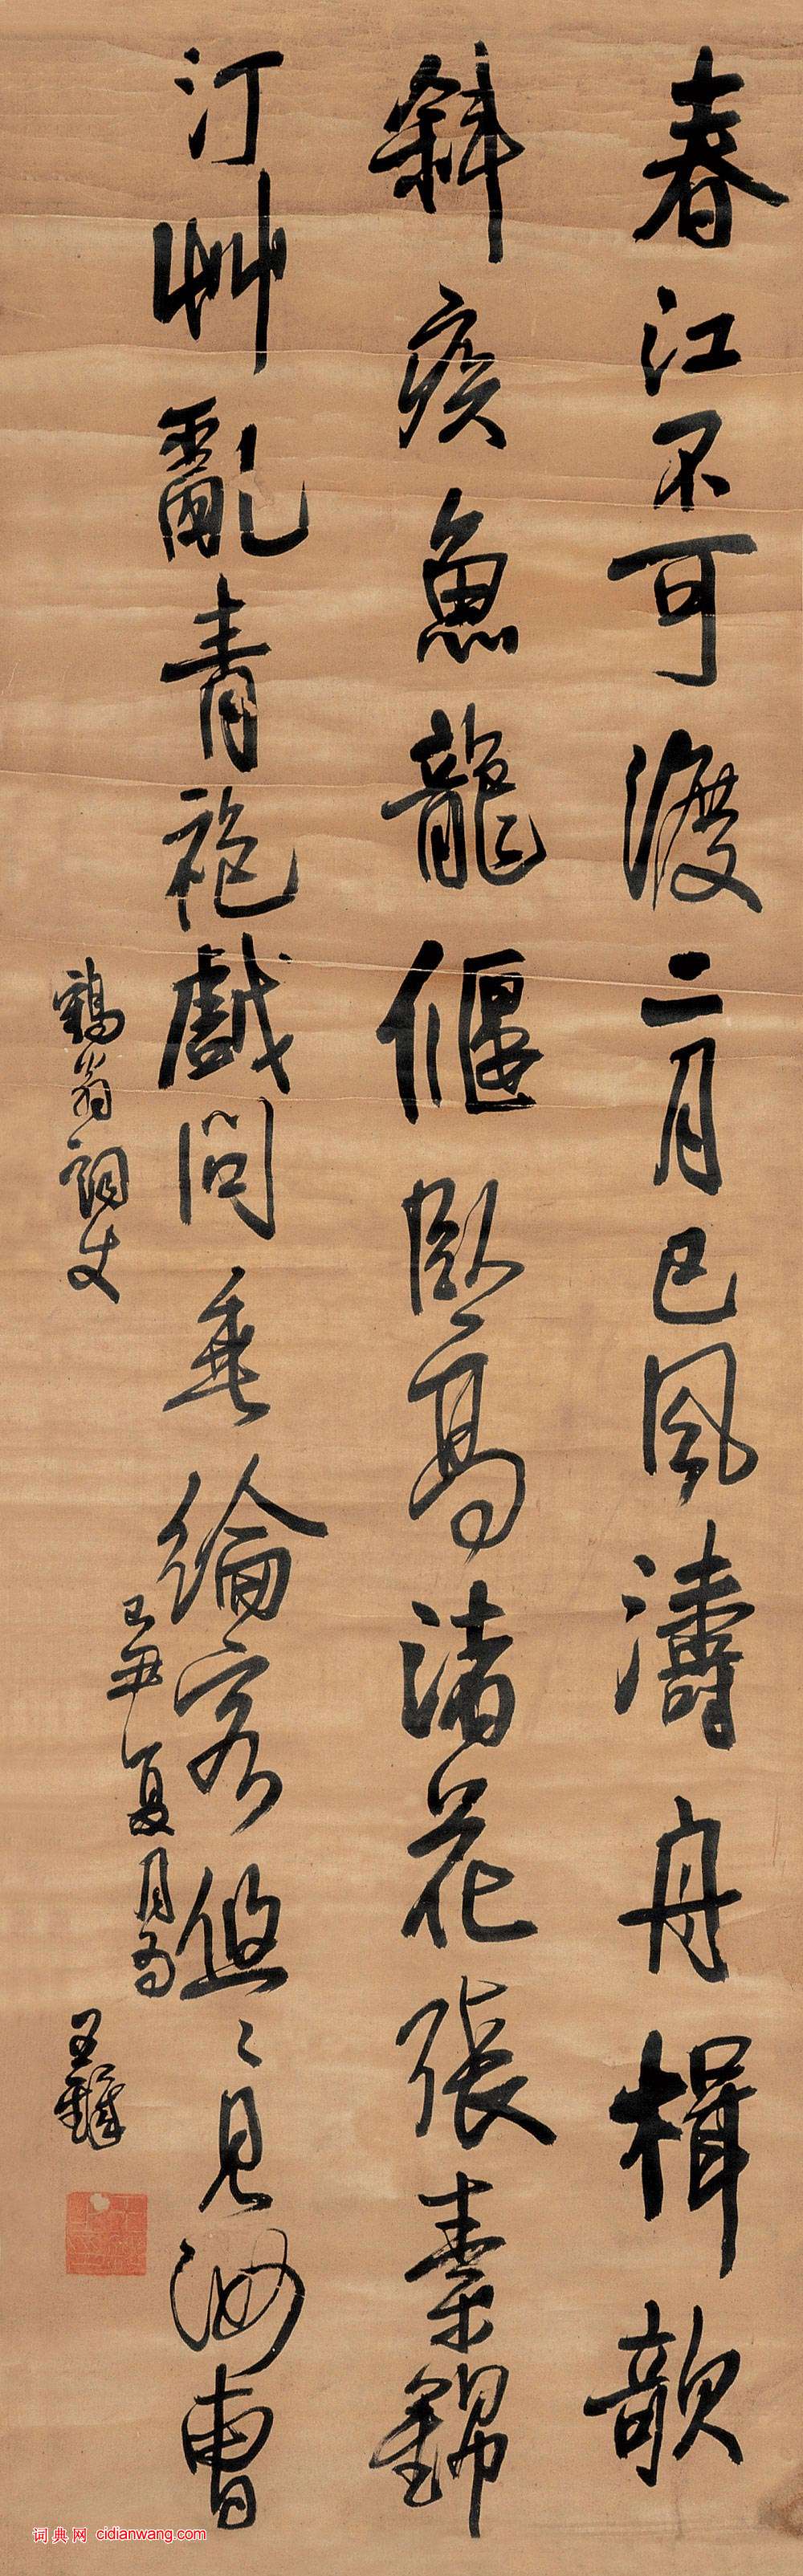 春江不可渡二月已風濤舟楫欹
斜疾魚龍偃臥高渚花張素錦
汀艸亂青袍戲問垂綸客悠〻見汝曹
己丑夏月為
鶴翁詞丈
王鐸
词典网 cidianwang.com